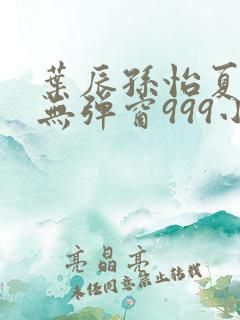 葉辰孫怡夏
無彈窗999小
亮晶亮
未经同意禁止转载